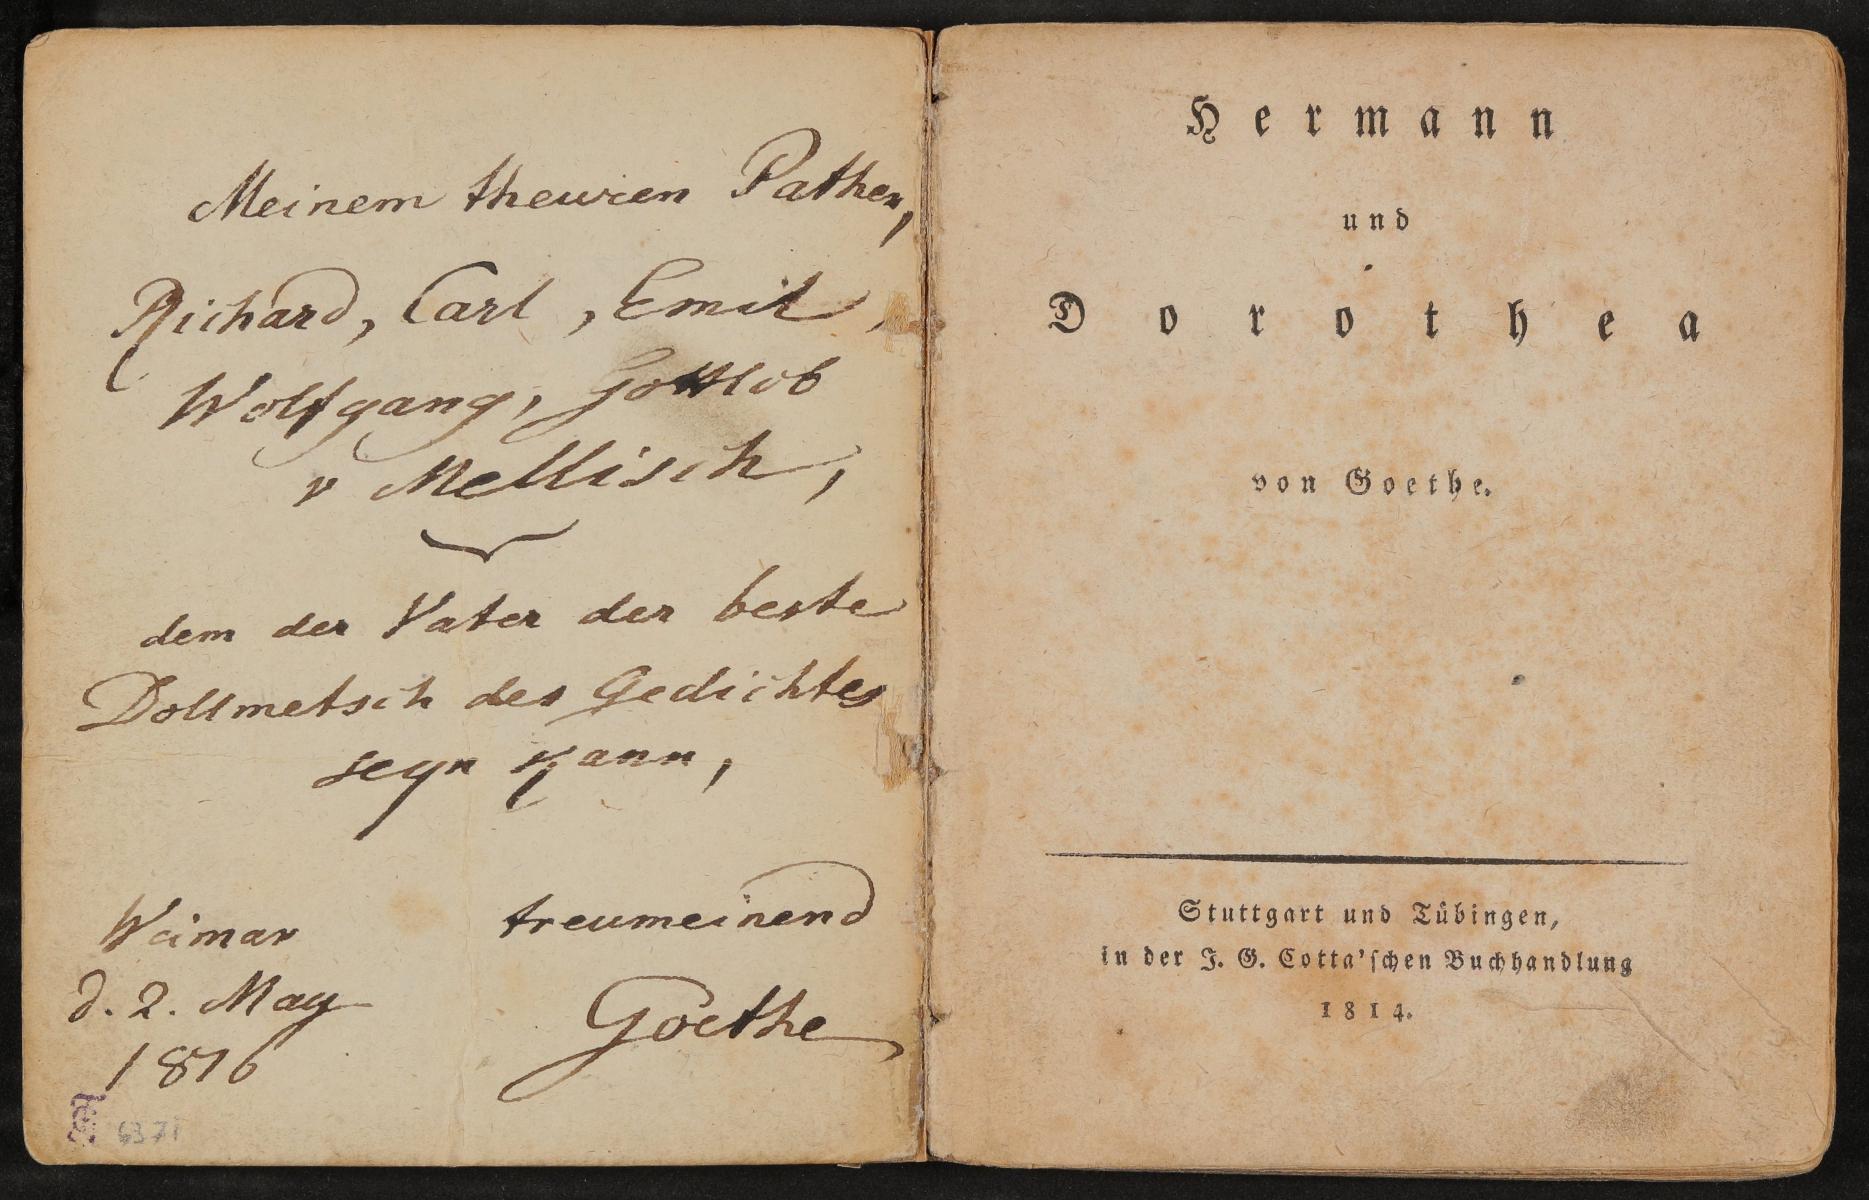 Meinem theuren Pathen,
Richard, Carl, Emil,
Wolfgang, Gottlob
v Mellisch,
dem der Vater der beste
Dollmetsch des Gedichtes
seyn kann,
treumeinend
Goethe
Weimar
d. 2. May
1816
6371
Hermann
und
Dorothea
von Goethe.
Stuttgart und Tübingen,
in der J. G. Cotta'schen Buchhandlung
1814.